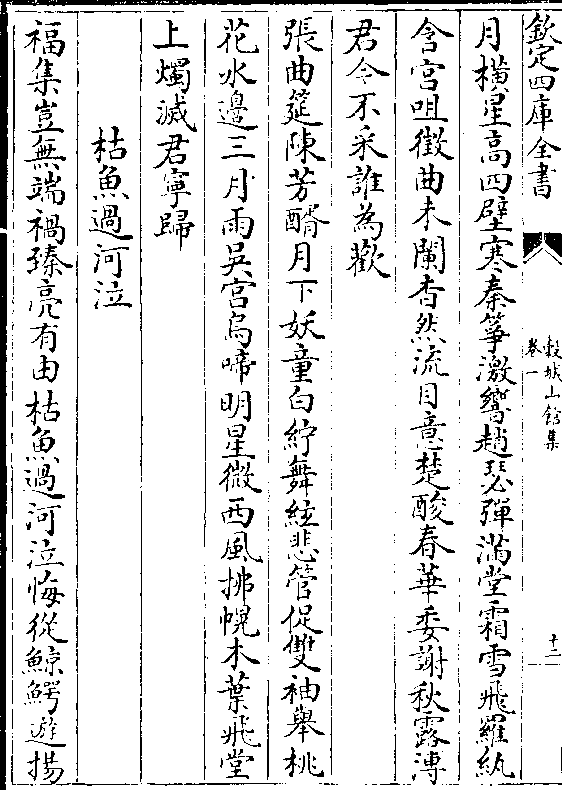 欽定四庫全書
穀城山館集
卷一
十二
月橫星高四壁寒秦箏激響趙瑟彈滿堂霜雪飛羅紈
含宮咀徵曲未闌杳然流目意楚酸春華委謝秋露漙
君今不采誰為歡
張曲筵陳芳醑月下妖童白紵舞絃悲管促雙袖舉桃
花水邊三月雨吳宮烏啼明星微西風拂幌木葉飛堂
上燭滅君寧歸
枯魚過河泣
福集豈無端禍臻亮有由枯魚過河泣悔從鯨鰐遊揚